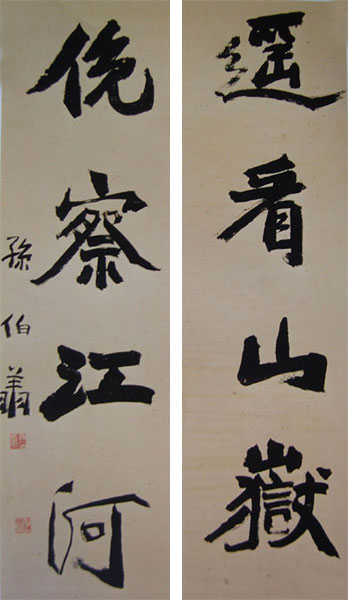 遙看山嶽
俛察江河
孫伯翔